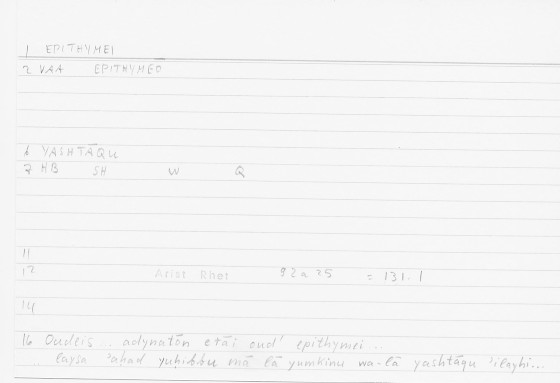 1 EPITHYMEI
2 VAA EPITHYMEO
6 YASHTĀQU
7 HB SH W Q
11
12 Arist Rhet 92a25 = 131.1
14
16 Oudeis .. adynatōn erāi oud' epithymei ..
.. laysa 'aḥad yuḥibbu mā lā yumkinu wa-lā yashtāqu 'ilayhi...